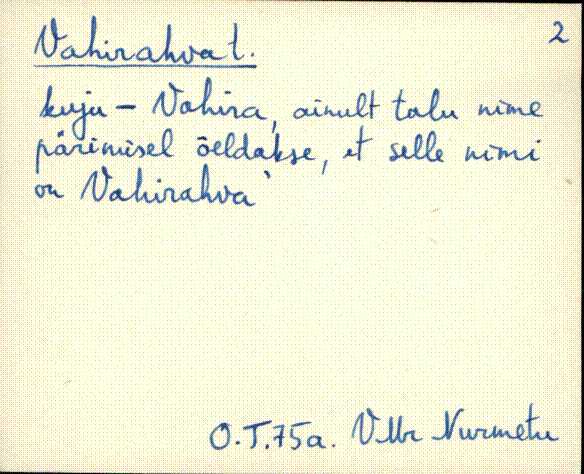 2
Vahirahva t.
kuju – Vahira, ainult talu nime
pärimisel öeldakse, et selle nimi
on Vahirahva`
O.T. 75a. VMr Nurmetu